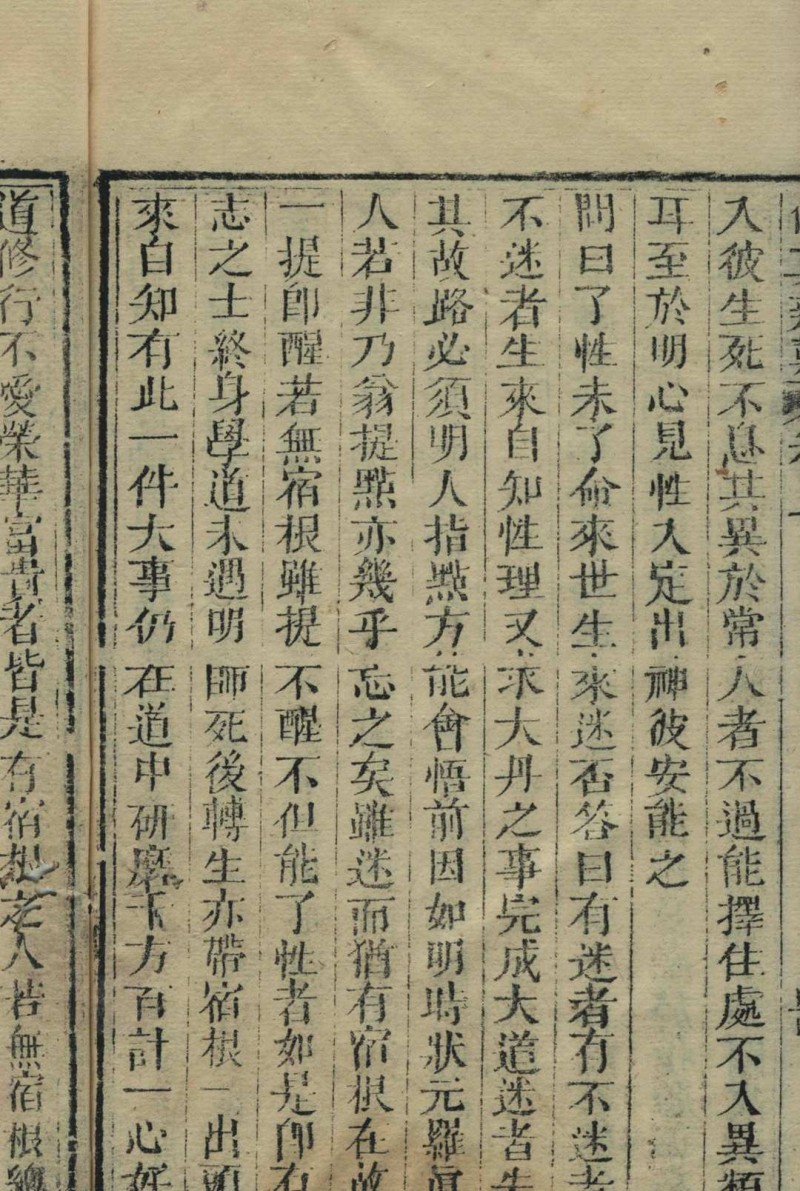 入彼生死不息其異於常人者不過能擇住處不入異類
耳至於明心見性入定出神彼安能之
問曰了性未了命來世生來迷否答曰有迷者有不迷者
不迷者生來自知性理又求大丹之事完成大道迷者失
其故路必須明人指點方能會悟前因如明時狀元羅
人若非乃翁提點亦幾乎忘之矣雖迷而猶有宿根在故
一提卽醒若無宿根雖提不醒不但能了性者如是卽有
志之士終身學道未遇明師死後轉生亦帶宿根一出頭
來自知有此一件大事仍在道中研磨千方百計一心好
道修行不愛榮華富貴者皆是有宿根之人若無宿根